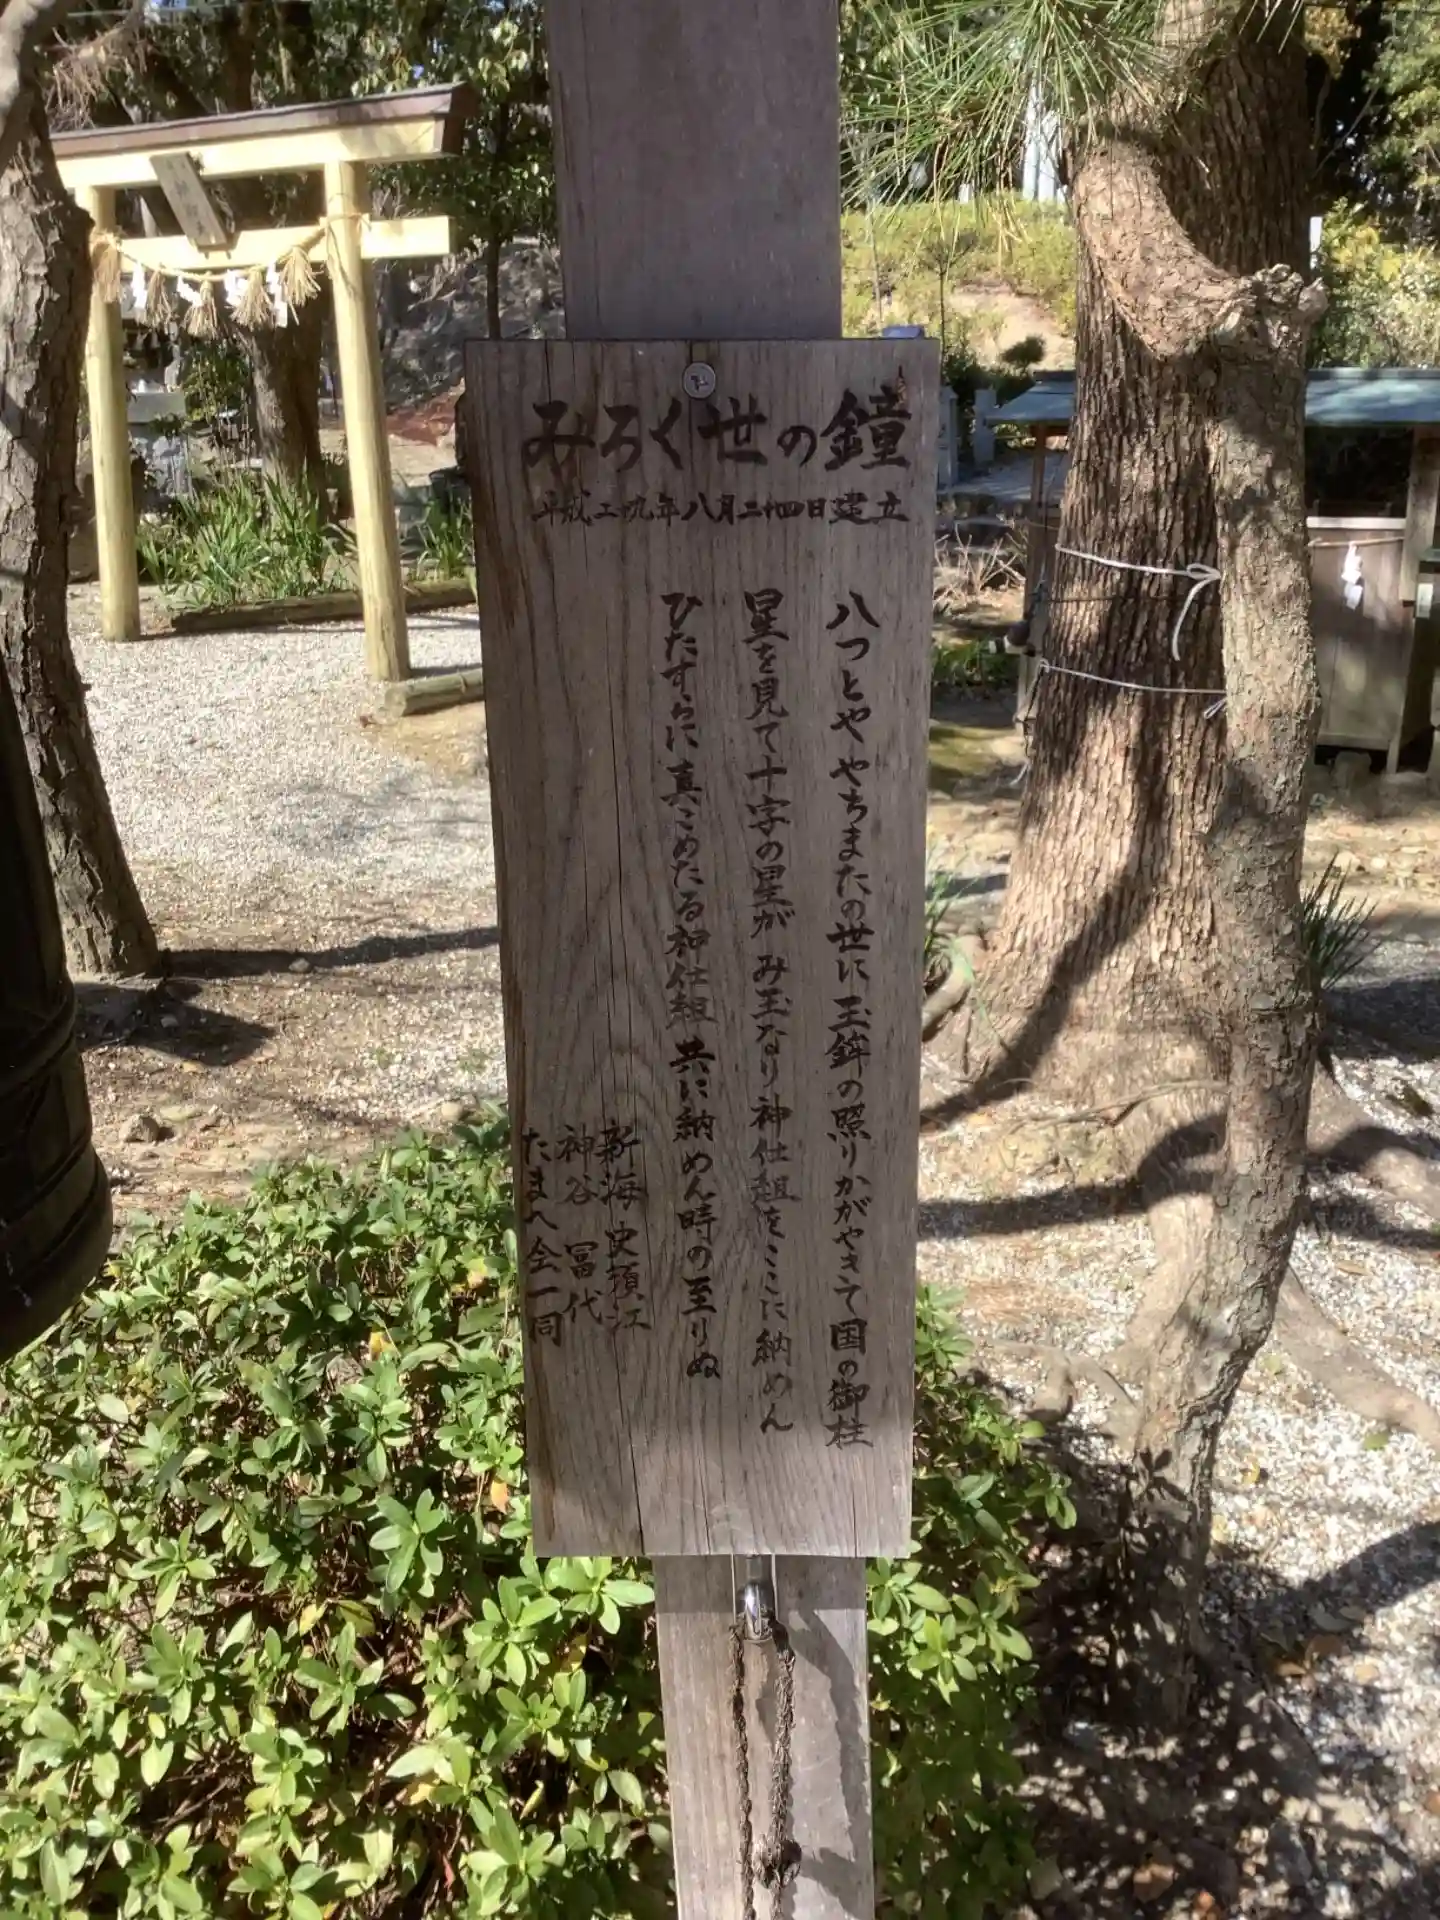 みろく世の鐘
平成二十九年八月二十四日建立
八つとや やちまたの世に玉鉾の照りかがやきて国の御柱
星を見て十字の星が み玉なり神仕組をここに納めん
ひたすらに真こめたる神仕組 共に納めん時の至りぬ
新海 史須江
神谷 冨代
たまへ会一同